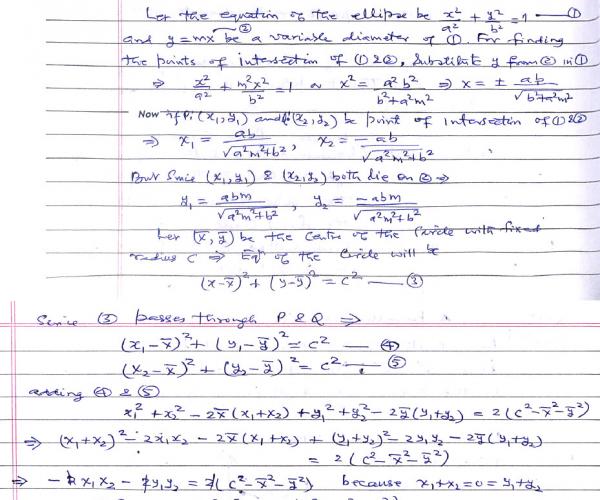 Let the equation of the ellipse be x²/a² + y²/b² = 1 — ①
and y = mx ② be a variable diameter of ①. For finding
the points of intersection of ① & ②, Substitute y from ② in ①
⇒ x²/a² + m²x²/b² = 1 ~ x² = a²b²/(b²+a²m²) ⇒ x = ± ab/√(b²+a²m²)
Now if P (x₁, y₁) and (x₂, y₂) be point of intersection of ① & ②
⇒ x₁ = ab/√(a²m²+b²), x₂ = -ab/√(a²m²+b²)
But Since (x₁, y₁) & (x₂, y₂) both lie on ② ⇒
y₁ = abm/√(a²m²+b²), y₂ = -abm/√(a²m²+b²)
Let (x̄, ȳ) be the Centre of the Circle with fixed
radius c ⇒ Eqⁿ of the Circle will be
(x-x̄)² + (y-ȳ)² = c² — ③
Since ③ passes through P & Q ⇒
(x₁-x̄)² + (y₁-ȳ)² = c² — ④
(x₂-x̄)² + (y₂-ȳ)² = c² — ⑤
adding ④ & ⑤
x₁² + x₂² - 2x̄(x₁+x₂) + y₁² + y₂² - 2ȳ(y₁+y₂) = 2(c²-x̄²-ȳ²)
⇒ (x₁+x₂)² - 2x₁x₂ - 2x̄(x₁+x₂) + (y₁+y₂)² - 2y₁y₂ - 2ȳ(y₁+y₂)
= 2(c²-x̄²-ȳ²)
⇒ -2x₁x₂ - 2y₁y₂ = 2(c²-x̄²-ȳ²) because x₁+x₂=0=y₁+y₂